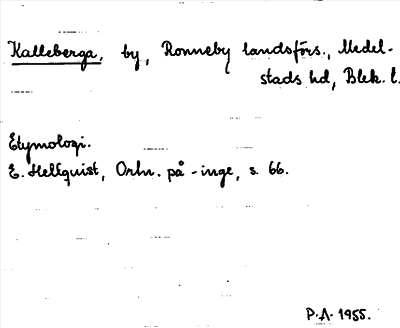 Kalleberga, by, Ronneby landsförs., Medel-
stads hd, Blek. l.
Etymologi.
E. Hellquist, Ortn. på -inge, s. 66.
P.A. 1955.